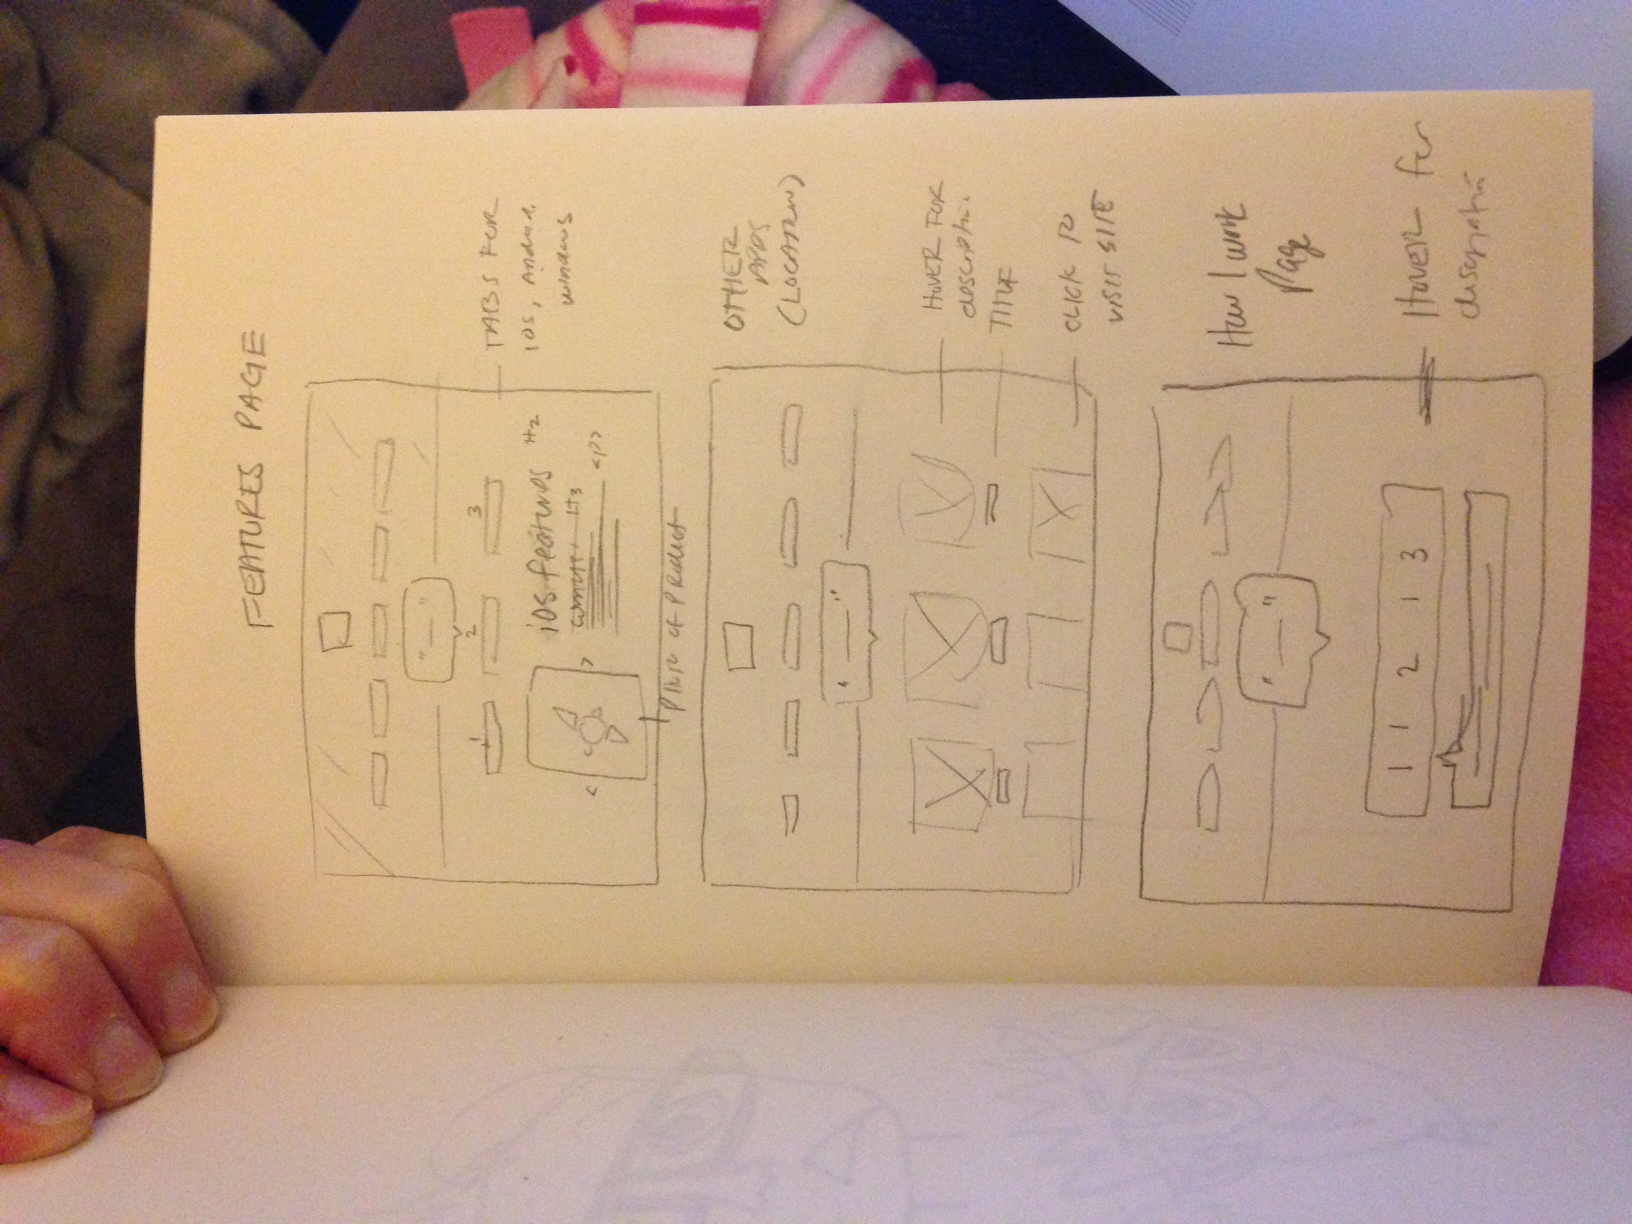 FEATURES PAGE
" — "
1 2 3
TABS FOR
iOS, Android,
windows
iOS features H2
H3
<p>
< >
PHOTO OF PRODUCT
OTHER
APPS
(LOCATION)
" — "
HOVER FOR
description
TITLE
CLICK TO
VISIT SITE
How I work
Page
" — "
1 1 2 1 3
HOVER for
description